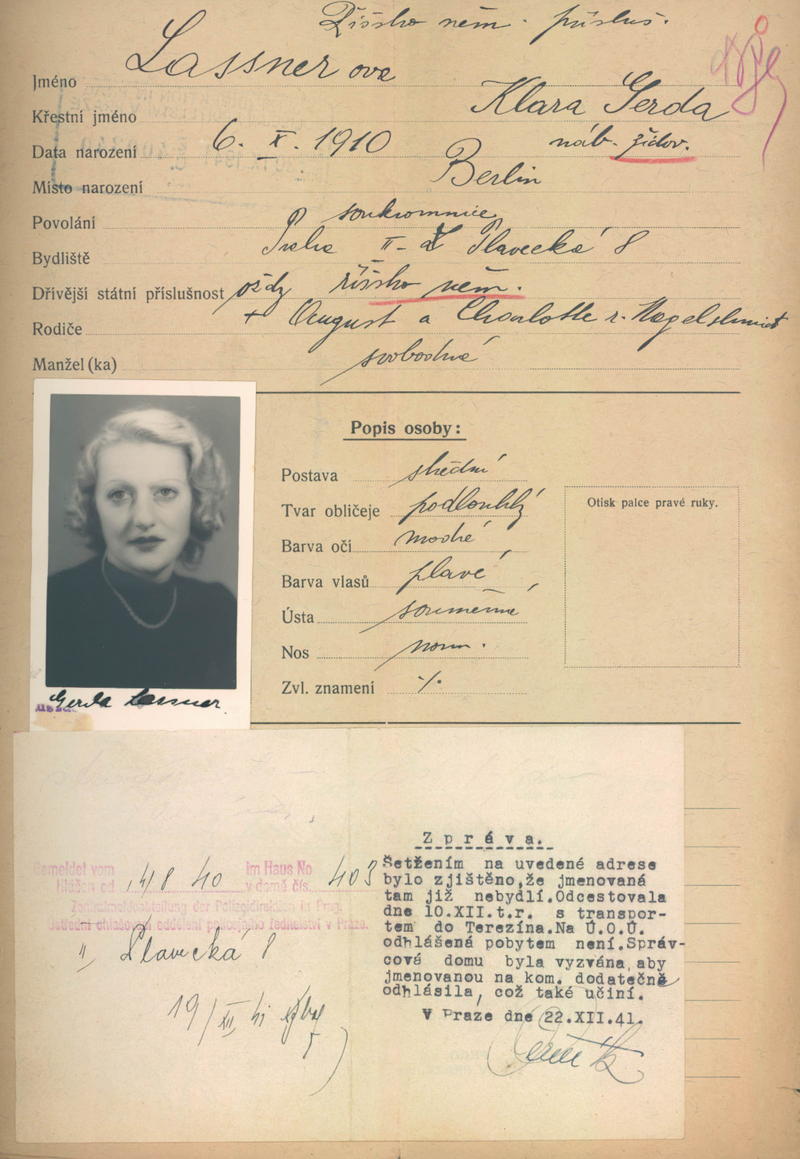 Říšsko něm. přísluš.
Jméno Lassnerova
Křestní jméno Klara Gerda
Data narození 6. X. 1910 náb. židov.
Místo narození Berlin
Povolání soukromnice
Bydliště Praha II- Plavecká 8
Dřívější státní příslušnost vždy říšsko něm.
Rodiče + August a Charlotte r. Nagelschmidt
Manžel (ka) svobodná
Popis osoby:
Postava střední
Tvar obličeje podlouhlý
Barva očí modré
Barva vlasů plavé
Ústa souměrné
Nos norm.
Zvl. znamení ·/.
Otisk palce pravé ruky.
Gerda Lassner.
Gemeldet vom im Haus No
Hlášen od 14/8 40 v domě čís. 403
Zentralmeldeabteilung der Polizeidirektion in Prag.
Ústřední ohlašovací oddělení policejního ředitelství v Praze.
II, Plavecká 8
19/XII 41
Zpráva.
Šetžením na uvedené adrese
bylo zjištěno,že jmenovaná
tam již nebydlí.Odcestovala
dne 10.XII.t.r. s transpor-
tem do Terezína.Na Ú.O.Ú.
odhlášená pobytem není.Správ-
cové domu byla vyzvána aby
jmenovanou na kom. dodatečně
odhlásila, což také učiní.
V Praze dne 22.XII.41.